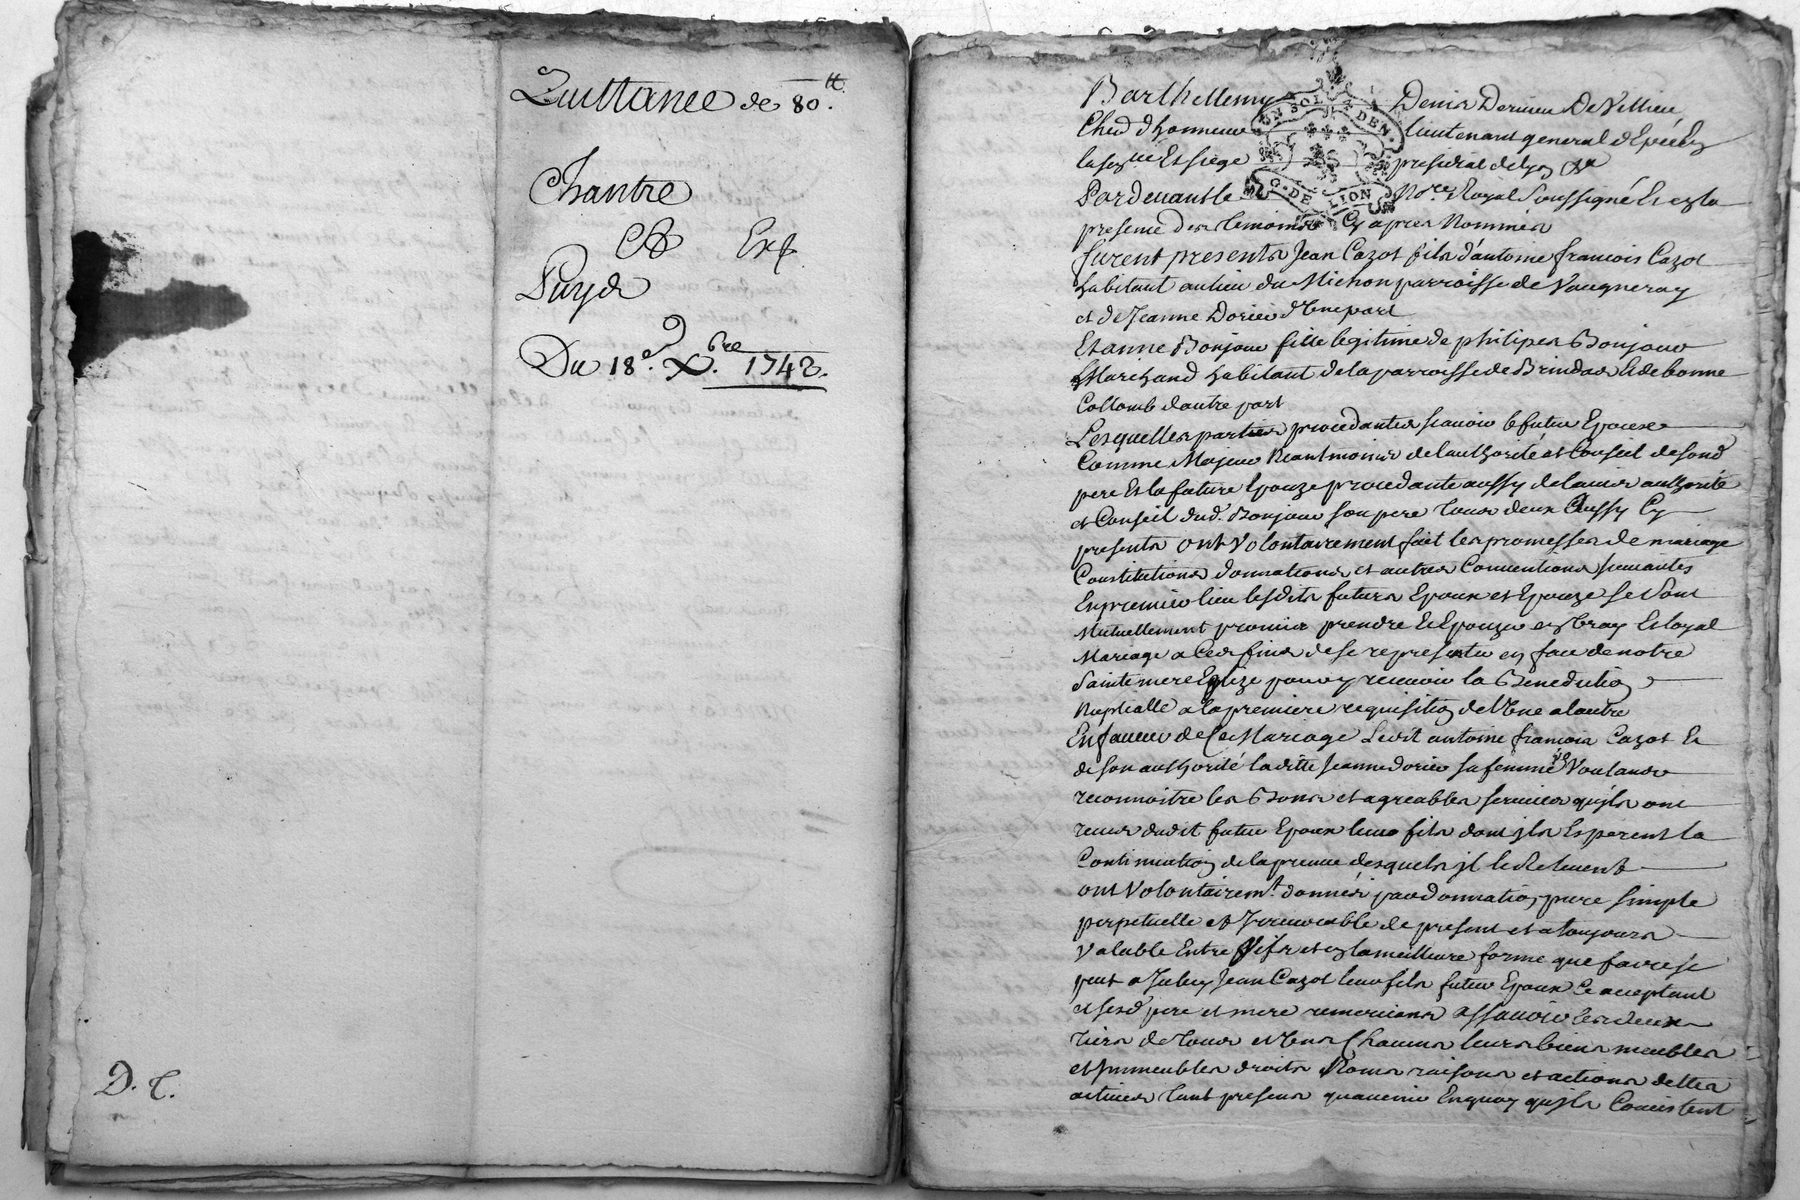 Quittance de 80.tt
Chantre
Exp
Puyd
Du 18.e Xbre 1748.
D. C.
Barthellemy Denis Dervieu De Villieu
Cher dhonneur lieutenant general dEpée En
la senue Et siege presidial de Lyon
UN SOL 4 DEN.
G. DE LION
Pardevant le Nore Royal soussigné Et en la
presence des temoins Cy apres Nommés
furent presents Jean Cazot fils d'antoine francois Cazot
habitant au lieu du Michon parroisse de Vaugneray
et de Jeanne Dorier d'Une part
Et anne Bonjour fille legitime de philipes Bonjour
Marchand habitant de la parroisse de Brindas Et de bonne
Collomb dautre part
Lesquelles parties procedantes scauoir le futur Epoux
Comme Majeur Neantmoins de lauthorité et Conseil de sond
pere Et la future Epouze procedante aussy de lauis authorité
et Conseil dud. Bonjour son pere tous deux Aussy Cy
presents ont Volontairement fait les promesses de mariage
Constitutions donnations et autres Conuentions suiuantes
En premier lieu lesdits futurs Epoux et Epouze se sont
Mutuellement promis prendre Et Epouzer en Vray Et loyal
Mariage a Ces fins de se representer en face de notre
Sainte mere Eglize pour y receuoir la Benediction
Nuptialle a la premiere requisition de l'Une a lautre
En faueur de Ce Mariage Ledit antoine francois Cazot Et
de son authorité laditte Jeanne Dorier sa femme Voulants
reconnoitre les Bons et agreables seruices quils ont
receus dudit futur Epoux leur fils dont ils Esperent la
Continuation de la preuue desquels il le Releuent
ont Volontairemt. donnés par donnation pure simple
perpetuelle et Irreuocable de present et a toujours
Valable Entre Vifs et en la meilleure forme que faire se
peut a Iceluy Jean Cazot leur fils futur Epoux Ce acceptant
et sesd pere et mere remerciant assauoir les deux
tiers de tous et Uns Chacuns leurs biens meubles
et Immeubles droits Noms raisons et actions dettes
actiues tant presens quauenir En quoy quils Consistent